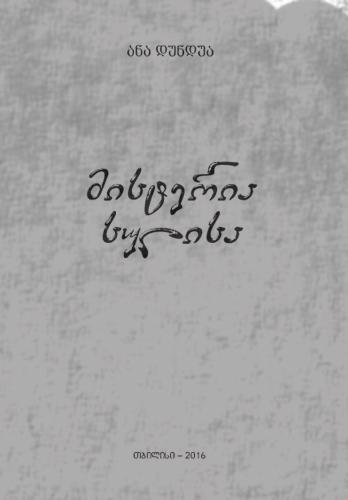 ანა დუნდუა
მისტერია
სულისა
თბილისი – 2016